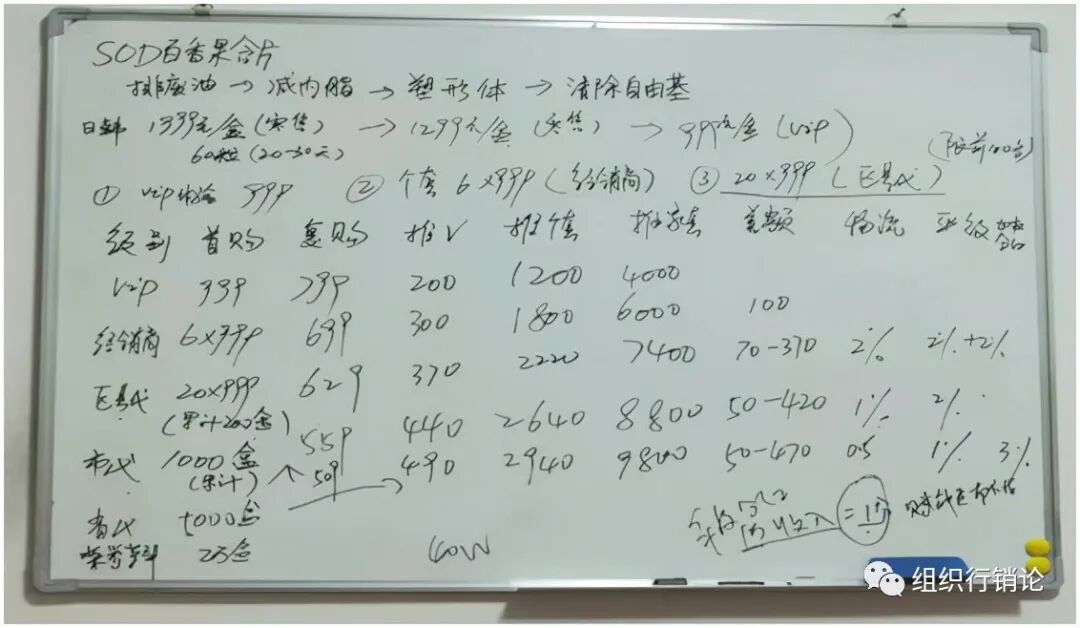 SOD百香果含片
排废油→减内脂→塑形体→清除自由基
日韩 1399元/盒(零售)→1299元/盒(零售)→999元/盒(Vip)
60粒(20-30天) (限前100名)
① Vip体验 999 ② 个套 6×999(经销商) ③ 20×999(区县代)
级别 首购 惠购 推V 推个套 推家套 差额 物流 平级
Vip 999 799 200 1200 4000
经销商 6×999 699 300 1800 6000 100
区县代 20×999 629 370 2220 7400 70-370 2% 2%+2%
(累计200盒) 559 440 2640 8800 50-420 1% 2%
市代 1000盒 509 490 2940 9800 50-470 0.5 1% 3%
(累计)
省代 5000盒
2万盒